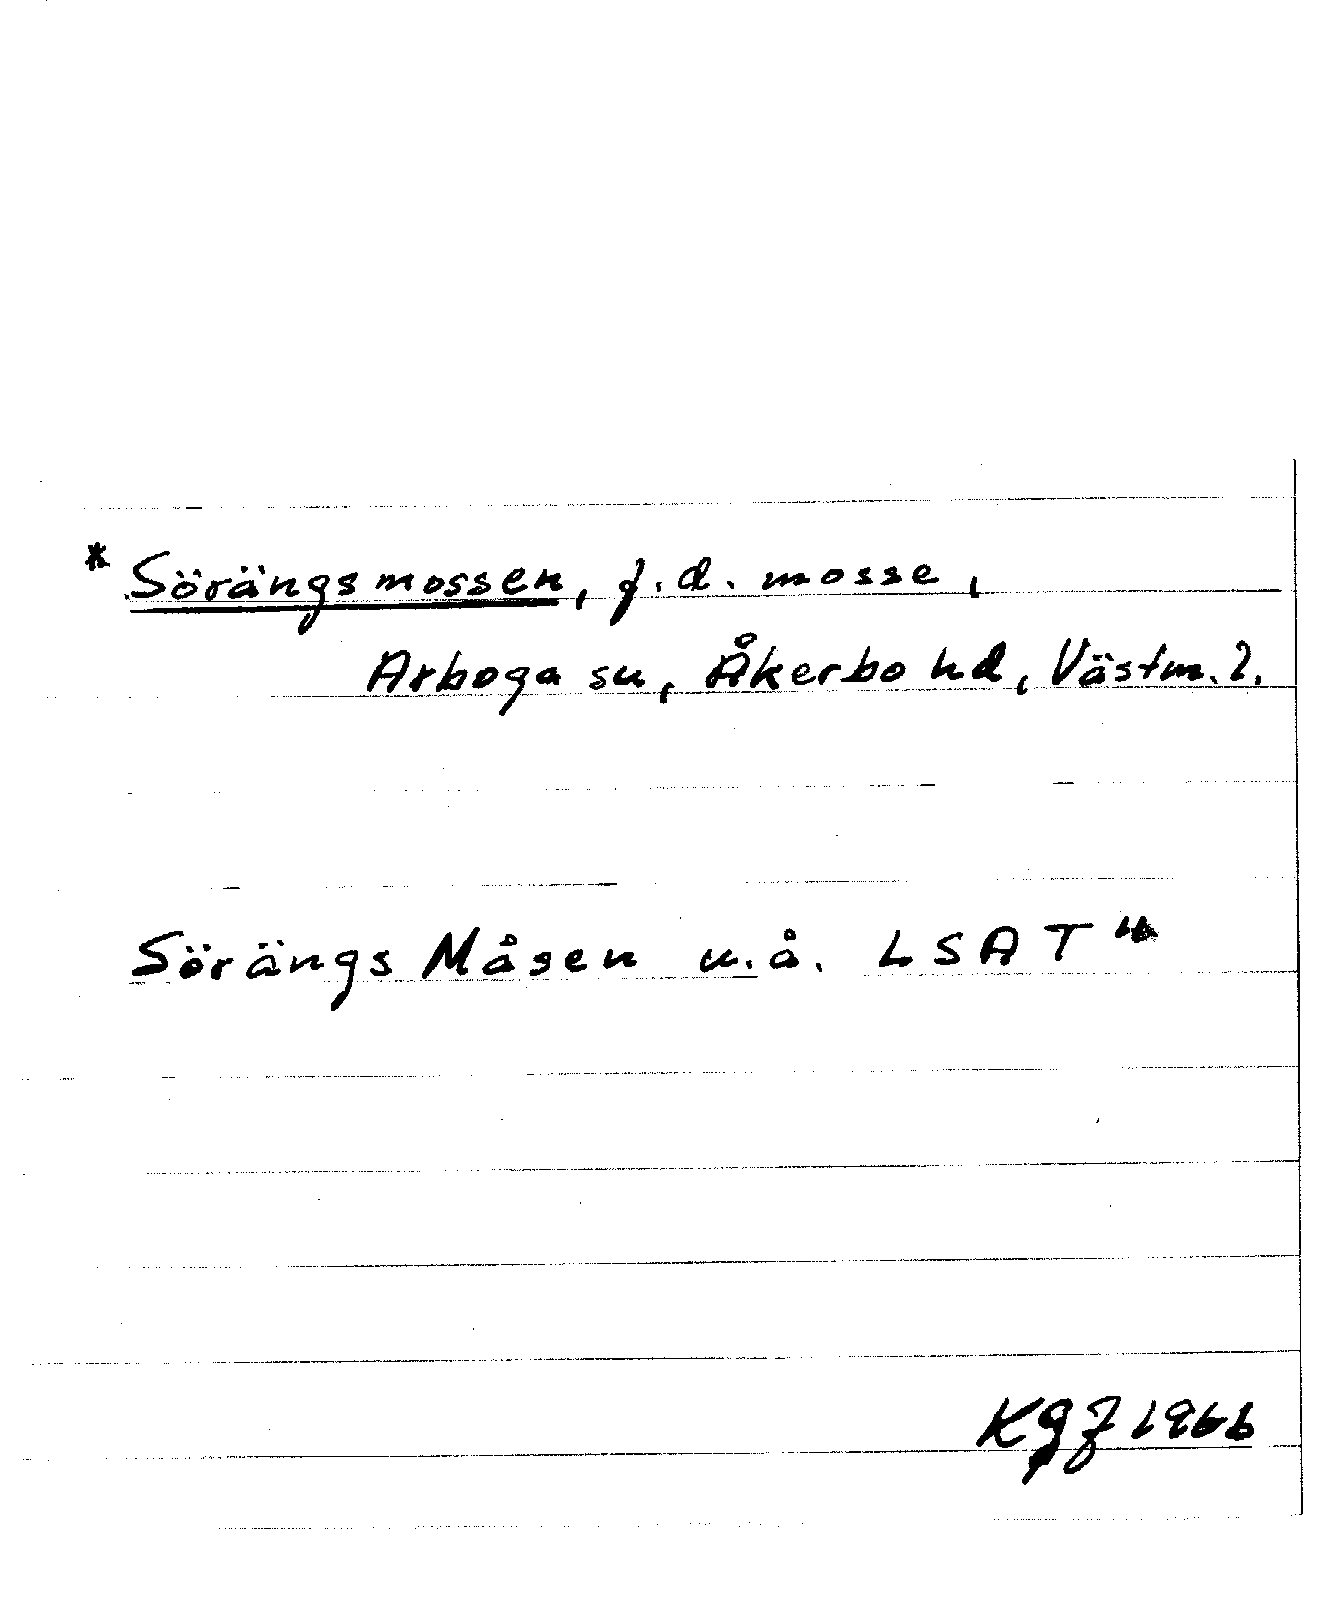 * Sörängsmossen, f.d. mosse,
Arboga sn, Åkerbo hd, Västm. l.
Sörängs Måsen u.å. LSA T
Kgf 1966